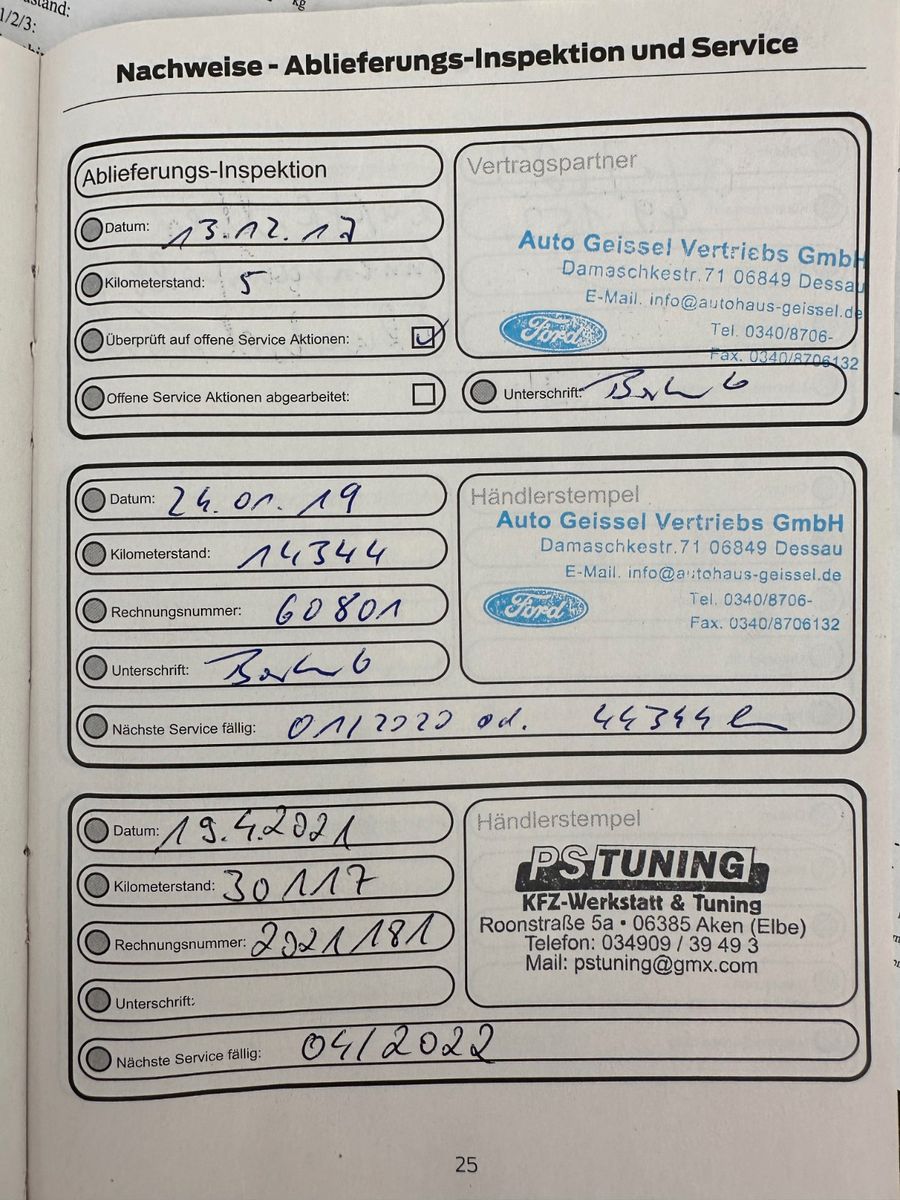 stand:
kg
1/2/3:
Nachweise - Ablieferungs-Inspektion und Service
Ablieferungs-Inspektion
Datum: 13.12.17
Kilometerstand: 5
Überprüft auf offene Service Aktionen:
Offene Service Aktionen abgearbeitet:
Vertragspartner
Auto Geissel Vertriebs GmbH
Damaschkestr.71 06849 Dessau
E-Mail. info@autohaus-geissel.de
Ford
Tel. 0340/8706-
Fax. 0340/8706132
Unterschrift:
Datum: 24.01.19
Kilometerstand: 14344
Rechnungsnummer: 60801
Unterschrift:
Händlerstempel
Auto Geissel Vertriebs GmbH
Damaschkestr.71 06849 Dessau
E-Mail. info@autohaus-geissel.de
Ford
Tel. 0340/8706-
Fax. 0340/8706132
Nächste Service fällig: 01/2020 od. 44344
Datum: 19.4.2021
Kilometerstand: 30117
Rechnungsnummer: 2021181
Unterschrift:
Händlerstempel
PS TUNING
KFZ-Werkstatt & Tuning
Roonstraße 5a • 06385 Aken (Elbe)
Telefon: 034909 / 39 49 3
Mail: pstuning@gmx.com
Nächste Service fällig: 04/2022
25